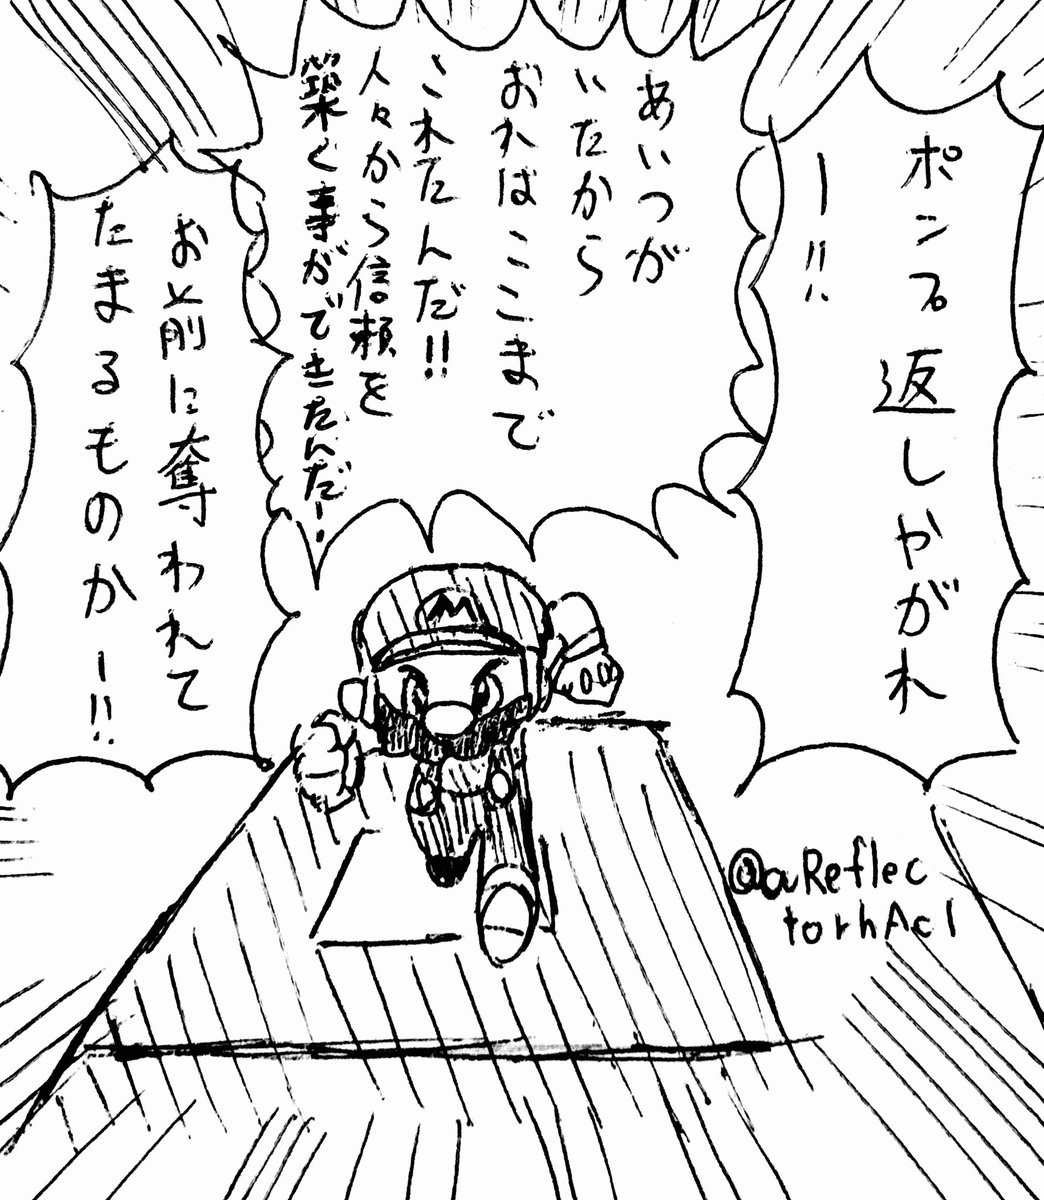 ポンプ返しやがれ
ー!!
あいつが
いたから
おれはここまで
これたんだ!!
人々から信頼を
築く事ができたんだー!
お前に奪われて
たまるものかー!!
M
@aReflec
torhAc1